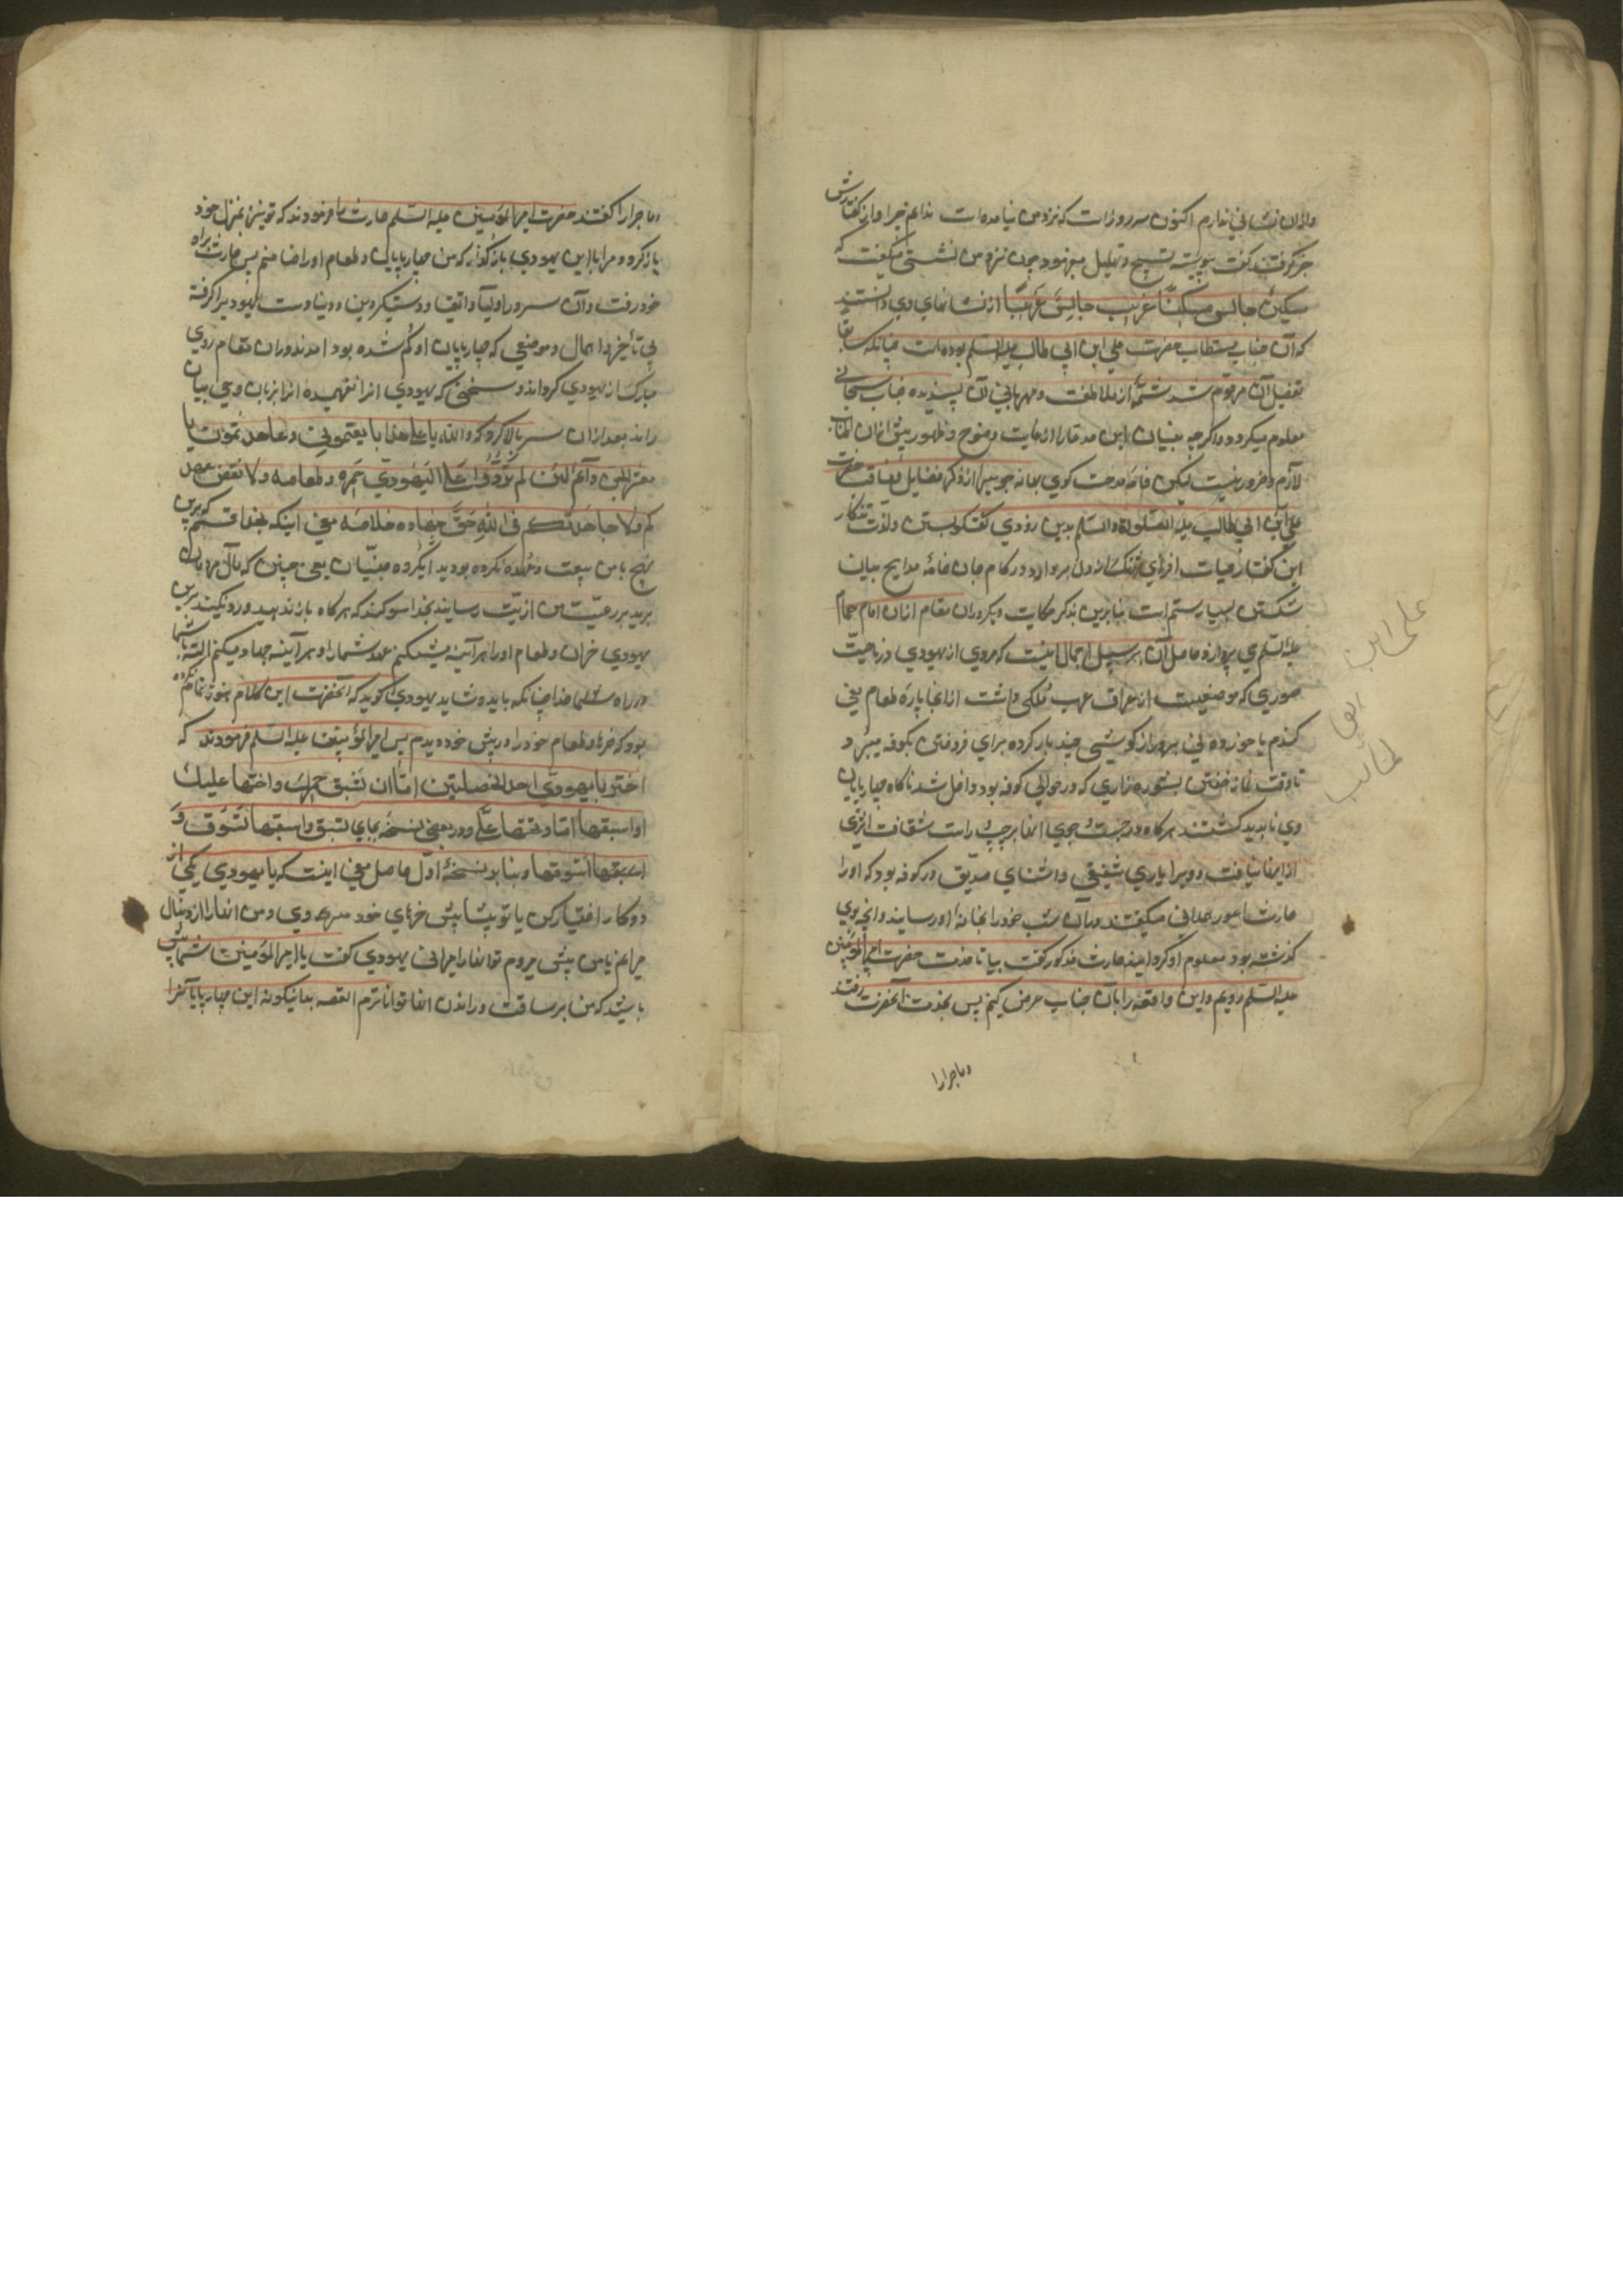 والدان نشانی ندارم اکنون سه روز است که نزد من نیامده است ندانم چرا و از گفتارش
جز گرفتند گفت پیوسته تسبیح و تهلیل میفرمود چون نزد من نشستی میگفت که
مسکین جالس مسکینا غریب جالس غریبا از نشانهای وی دانستند
که آن جناب مستطاب حضرت علی ابن ابی طالب علیه السلم بوده است چنانکه سابقا
تفصیل آن مرقوم شد شمّهٔ از ملاطفت و مهربانی آن پسندیده جناب سبحانی
معلوم میگردد و اگرچه بنیان این مدعا را از غایت وضوح و ظهور بیش ازان
لازم و ضرور نیست لیکن خامه مدحت کوی بهانه جوی را از ذکر فضایل و مناقب حضرت
علی ابن ابی طالب علیه الصلوة والسلم بدین زودی گفتگو بستن و لذت تذکار
این گفتار حیات افزای از دل برواورد در کام جان خامهٔ مدایح بیان
شکستن بسیار ستم است بنابرین بذکر حکایت دیگر دران مقام ازان امام همام
علیه السلم می پردازد حاصل آن بر سبیل اجمال اینست که مردی از یهودی در ناحیت
سوری که موضعیست از عراق عرب ملکی داشت از انجا پاره طعام یعنی
گندم یا جو زده لی بر دراز گوشی چند بار کرده برای فروختن بکوفه میبرد
تا وقت نماز خفتن بشوره زاری که در حوالی کوفه بود داخل شد ناگاه چارپایان
وی ناپدید گشتند هرگاه در جست و جوی انها بر چپ و راست شتافت اثری
از انها نیافت و ویرا یاری شفیقی و اشنای صدیق در کوفه بود که او را
حارث اعور همدانی میگفتند در آن شب خود را بخانهٔ او رسانید و انچه بوی
گذشته بود معلوم او گردانید حارث مذکور گفت بیا تا خدمت حضرت امیرالمؤمنین
علیه السلم رویم و این واقعه را بآن جناب عرض کنیم پس بخدمت آنحضرت رفتند
وماجرارا
علی ابن
ابی
طالب
وماجرارا گفتند حضرت امیرالمؤمنین علیه السلم حارث را فرمودند که تو نیز بمنزل خود
بازگرد و مرا با این یهودی بازگذار که من چهارپایان و طعام او را ضامنم پس حارث براه
خود رفت و آن سرور اولیا و اتقیا و دستگیر دین و دنیا دست یهودیرا گرفته
بی تأخیر و اهمال و موضعی که چارپایان او گم شده بود امدند و دران مقام روی
مبارک از یهودی گردانده سخنی که یهودی انرا نفهمیده انرا بزبان وحی بیان
راند بعد ازان سر بالا کرد که والله یا علی هذا بایعتمونی وعاهدتمونی یا
معشر الجن وایم لئن لم تردوا علی الیهودی حمره وطعامه ولا نقض عهد
کم ولا جاهدتکم فی الله حق جهاده خلاصه معنی اینکه بخدا قسم که برین
نهج با من بیعت و عهد نکرده بودید ایگروه جنیان یعنی چنین که مآل
برید بر رعیت من اذیت رسانید بخدا سوگند که هرگاه باز ندهید و رد نکنید برین
یهودی خران و طعام او را هر آینه بشکنم عهد شما را و هر آینه جهاد میکنم البته با شما
در راه خدا چنانکه باید و شاید یهودی گوید که آنحضرت این کلام هنوز تمام نکرده
بود که خرها و طعام خود را در پیش خود دیدم پس امیرالمؤمنین علیه السلم فرمودند که
اختر یا یهودی احد الخصلتین اما ان تسبق حمرک واحثها علیک
او اسبقها انا وتحثها علی و در بعضی نسخه بجای تسبق و اسبقها تسوق و
اسوقها و بنا بر نسخهٔ اول حاصل معنی اینست که یا یهودی یکی از
دو کار را اختیار کن یا تو پیشاپیش خرهای خود میروی و من انها را از دنبال
میرانم یا من پیش میروم تو انها را میرانی یهودی گفت یا امیرالمؤمنین شما پیش
باشید که من بر ساقت و راندن انها تواناترم القصه بعد اینگونه این چهارپایانرا